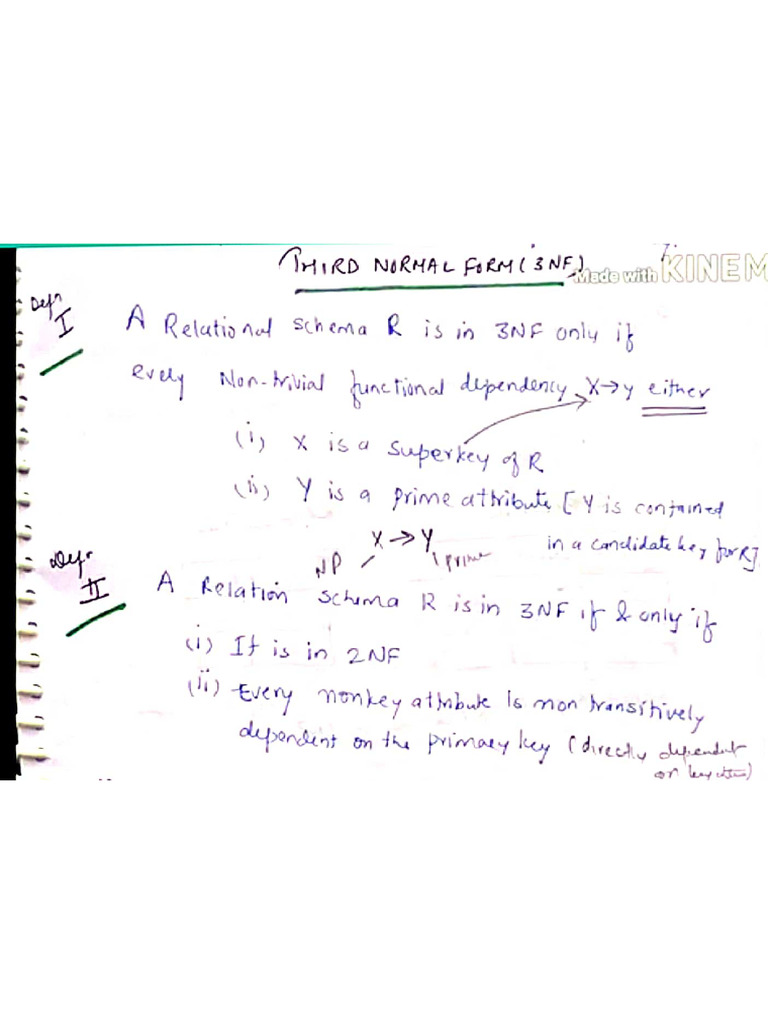 THIRD NORMAL FORM (3NF)
Made with KINEM
Defn I
A Relational schema R is in 3NF only if
every Non-trivial functional dependency X→y either
(i) X is a superkey of R
(ii) Y is a prime attribute [Y is contained
in a candidate key for R]
X→Y
NP prime
Defn II
A Relation schema R is in 3NF if & only if
(i) It is in 2NF
(ii) Every nonkey attribute is non transitively
dependent on the primary key (directly dependent
on key)